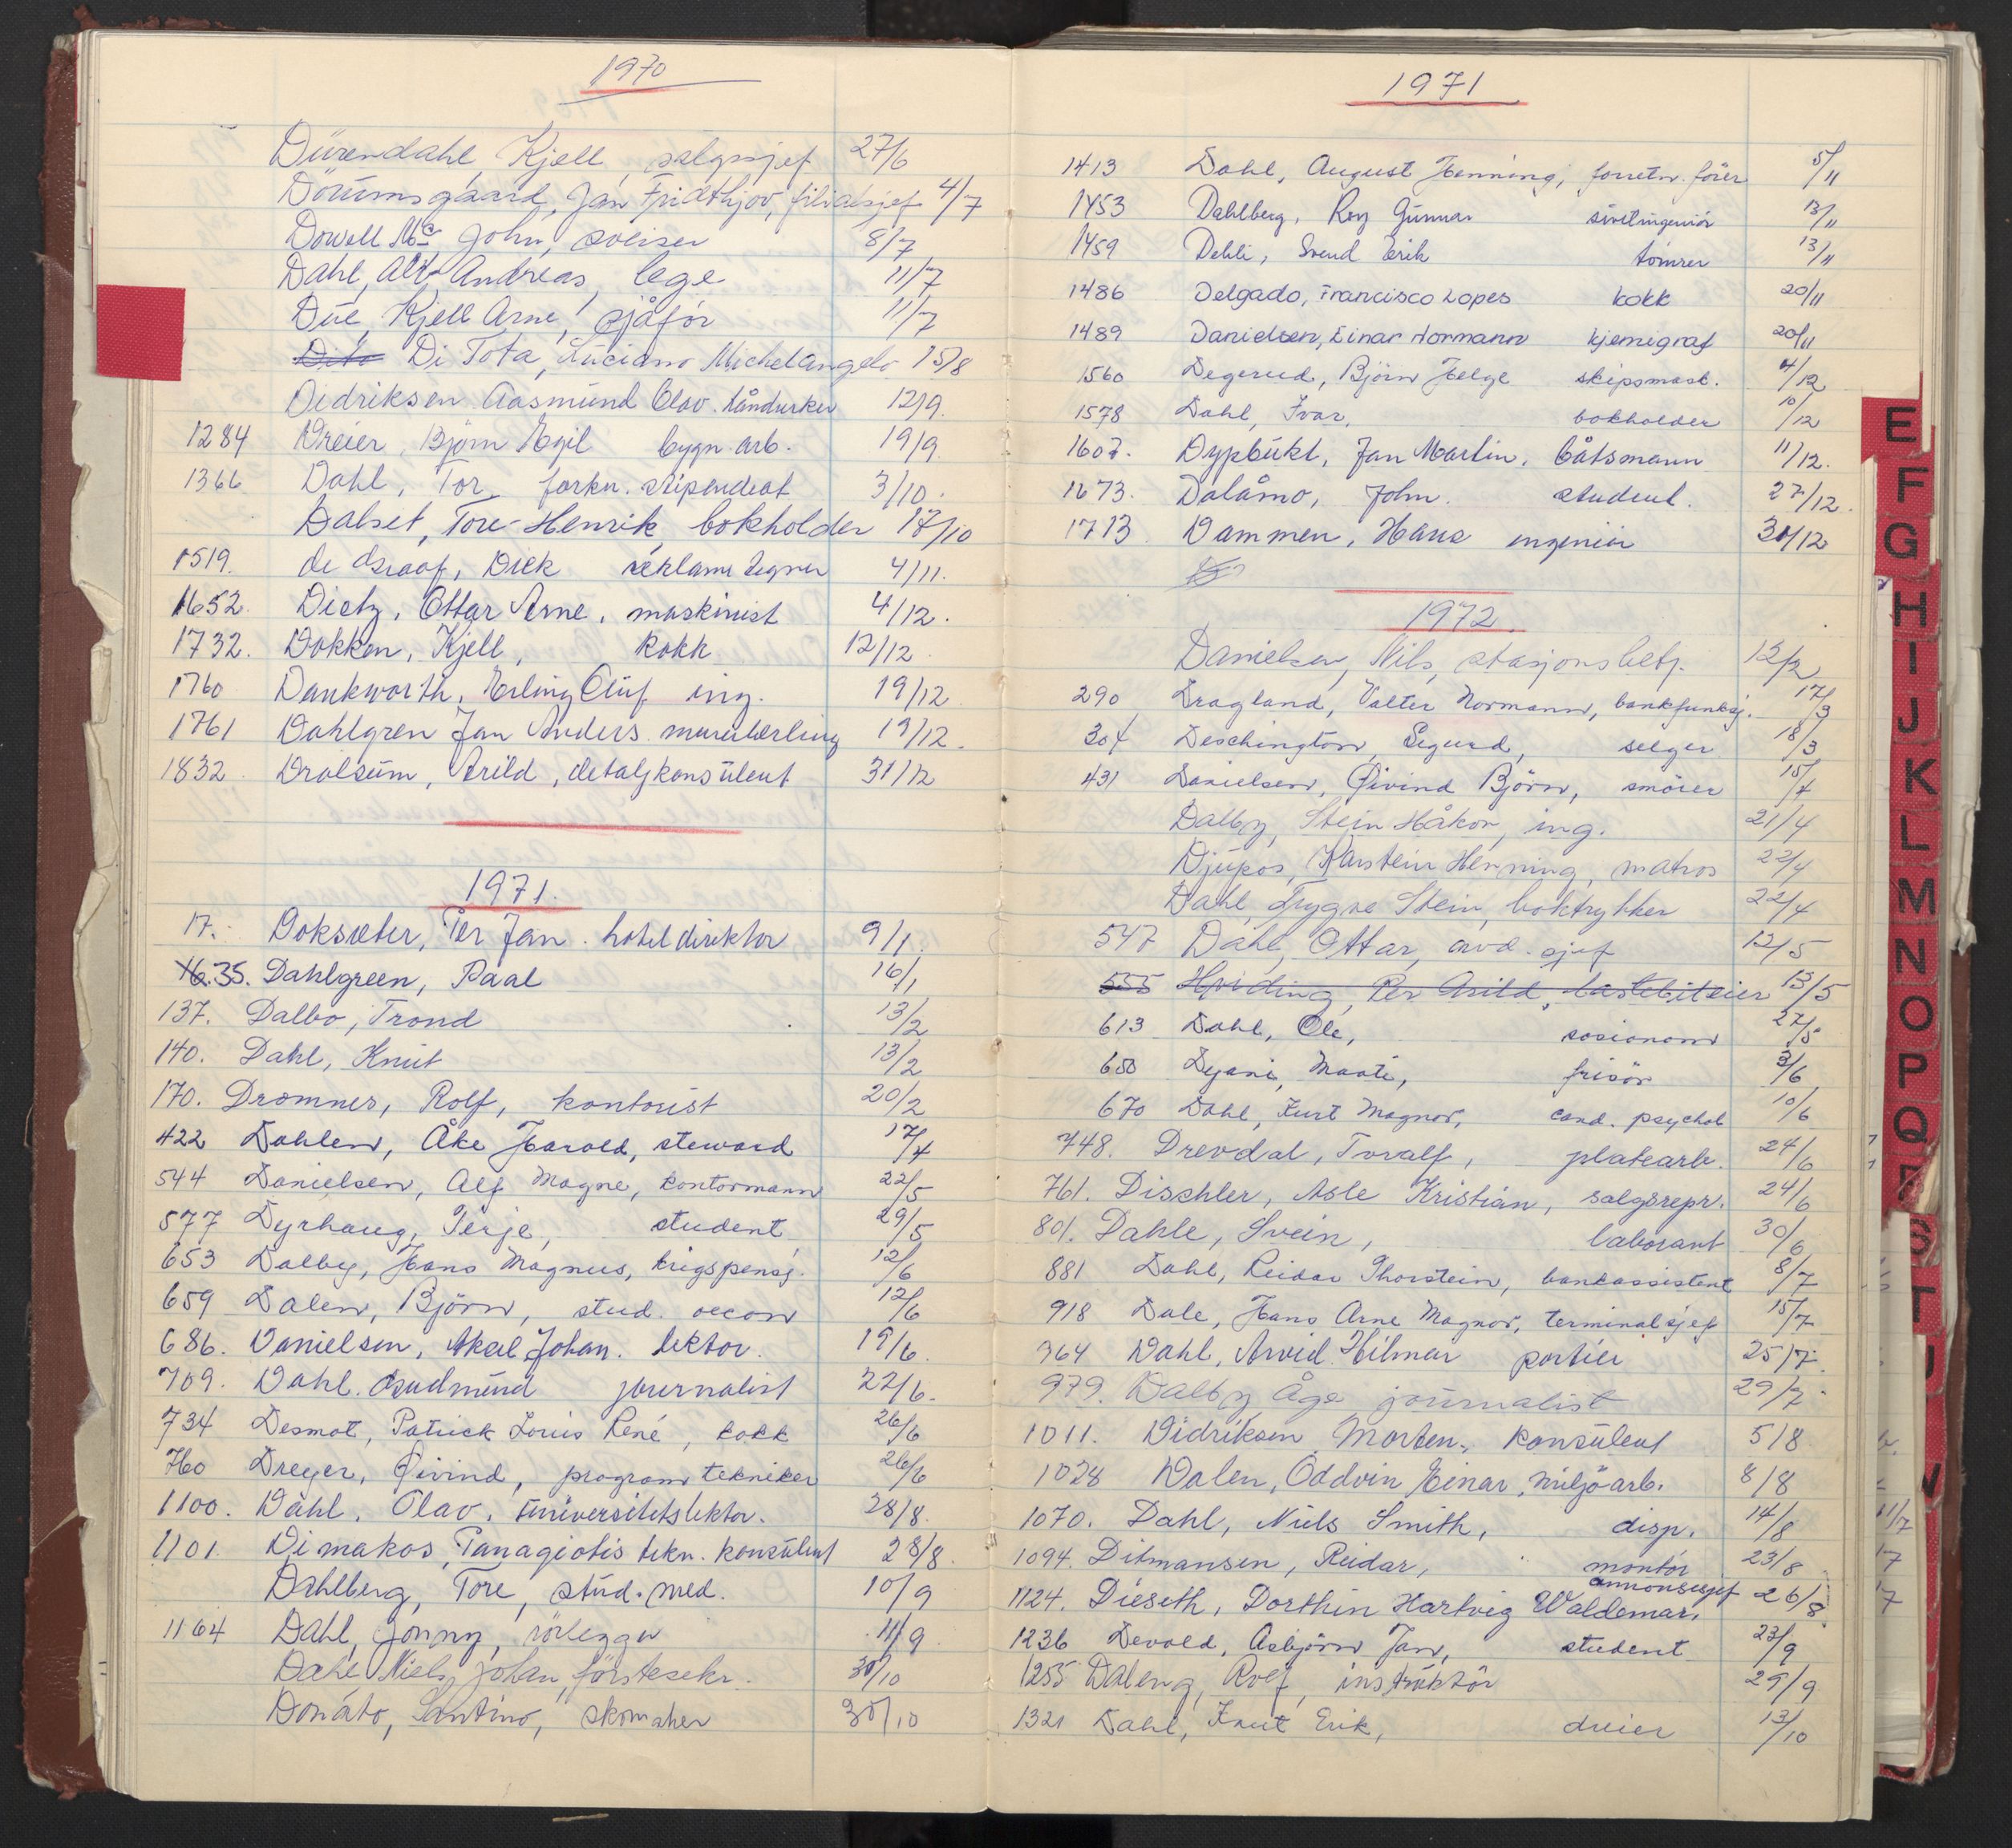 1970
Dürendahl, Kjell, salgssjef 27/6
Dörumsgaard, Jan Fridthjov, filialsjef 4/7
Dowell Mc John, sveiser 8/7
Dahl, Alf Andreas, lege 11/7
Due, Kjell Arne, sjåför 11/7
Dito Di Tota, Luciano Michelangelo 15/8
Didriksen Aasmund Olav. håndverker 12/9.
1284 Dreier, Björn Egil bygn. arb. 19/9
1366 Dahl, Tor forskn. stipendiat 3/10.
Dalset, Tore-Henrik, bokholder 17/10
1519. de Graaf, Dick reklame tegner 4/11.
1652. Dietz, Ottar Arne, maskinist 4/12.
1732. Dokken, Kjell, kokk 12/12.
1760 Dankworth, Erling Oluf ing. 19/12
1761 Dahlgren Jan Anders murerlærling 19/12.
1832. Dralsum, Arild, detaljkonsulent 31/12
1971.
17. Doksæter, Per Jan. hotel direktor 9/1.
16. 35. Dahlgreen, Paal 16/1
137. Dalbo, Trond 13/2
140. Dahl, Knut 13/2
170. Dromnes, Rolf, kontorist 20/2
422 Dahlen, Åke Harold, steward 17/4
544 Danielsen, Alf Magne, kontormann 22/5
577 Dyrhaug, Terje, student 29/5
653 Dalby, Hans Magnus, krigspensj. 12/6
659 Dalen, Björn, stud. oecon 12/6
686. Danielsen, Aksel Johan. lektor. 19/6.
709. Dahl. Gudmund journalist 22/6.
734 Desmot, Patrick Louis René, kokk 26/6
760 Dreyer, Øivind, program tekniker 26/6
1100. Dahl, Olav, universitetslektor. 28/8.
1101. Dimakos, Panagiotis tekn. konsulent 28/8.
Dahlberg, Tore, stud. med. 10/9
1164 Dahl, Jonny, rörlegger 11/9
Dahl Niels Johan, förstesekr. 30/10
Donato, Santino, skomaker 30/10
1971
1413 Dahl, August Henning, forretn. förer 5/11
1453 Dahlberg, Roy Gunnar sivilingeniör 13/11
1459 Dehli, Svend Erik tömrer 13/11
1486 Delgado, Francisco Lopes kokk 20/11
1489 Danielsen, Einar Normann kjemigraf 20/11
1560 Degerud, Björn Helge skipsmask. 4/12
1578 Dahl, Ivar, bokholder 10/12
1607. Dypbukt, Jan Martin, båtsmann 11/12.
1673. Dalåmo, John. student. 27/12.
1713 Dammen, Hans ingeniör 31/12
1972.
Danielsen, Nils, stasjonsbetj. 12/2
290 Dragland, Valter Normann, bankfunksj. 17/3
304 Deschington, Sigurd, selger 18/3
431 Danielsen, Øivind Björn, smörer 15/4
Dalby, Stein Håkon, ing. 21/4
Djupos, Karstein Henning, matros 22/4
Dahl, Trygve Stein, boktrykker 22/4
547 Dahl, Ottar, avd. sjef 12/5
555 Hviding, Per Arild, lastebileier 13/5
613 Dahl, Ole, sosionom 27/5
650 Dyani, Maati, frisör 3/6
670 Dahl, Kurt Magnor, cand. psychol 10/6
748. Drevdal, Toralf, platearb. 24/6
761. Dischler, Asle Kristian, salgsrepr. 24/6
801. Dahle, Svein, laborant 30/6
881 Dahl, Reidar Thorstein, bankassistent 8/7
918 Dale, Hans Arne Magnor, terminalsjef 15/7
964 Dahl, Arvid Hilmar portier 25/7.
979. Dalby Åge journalist 29/7.
1011. Didriksen Morten, konsulent 5/8
1028 Dalen, Oddvin Einar, miljöarb. 8/8
1070. Dahl, Niels Smith, disp. 14/8
1094. Ditmansen, Reidar, montör 23/8
annonsesjef
1124. Dieseth, Dorthin Hartvig Waldemar, 26/8
1236 Devold, Asbjörn Jan, student 23/9
1255 Daleng, Rolf, instruktör 29/9
1321 Dahl, Knut Erik, dreier 13/10
E
F
G
H
I
J
K
L
M
N
O
P
Q
R
S
T
U
V